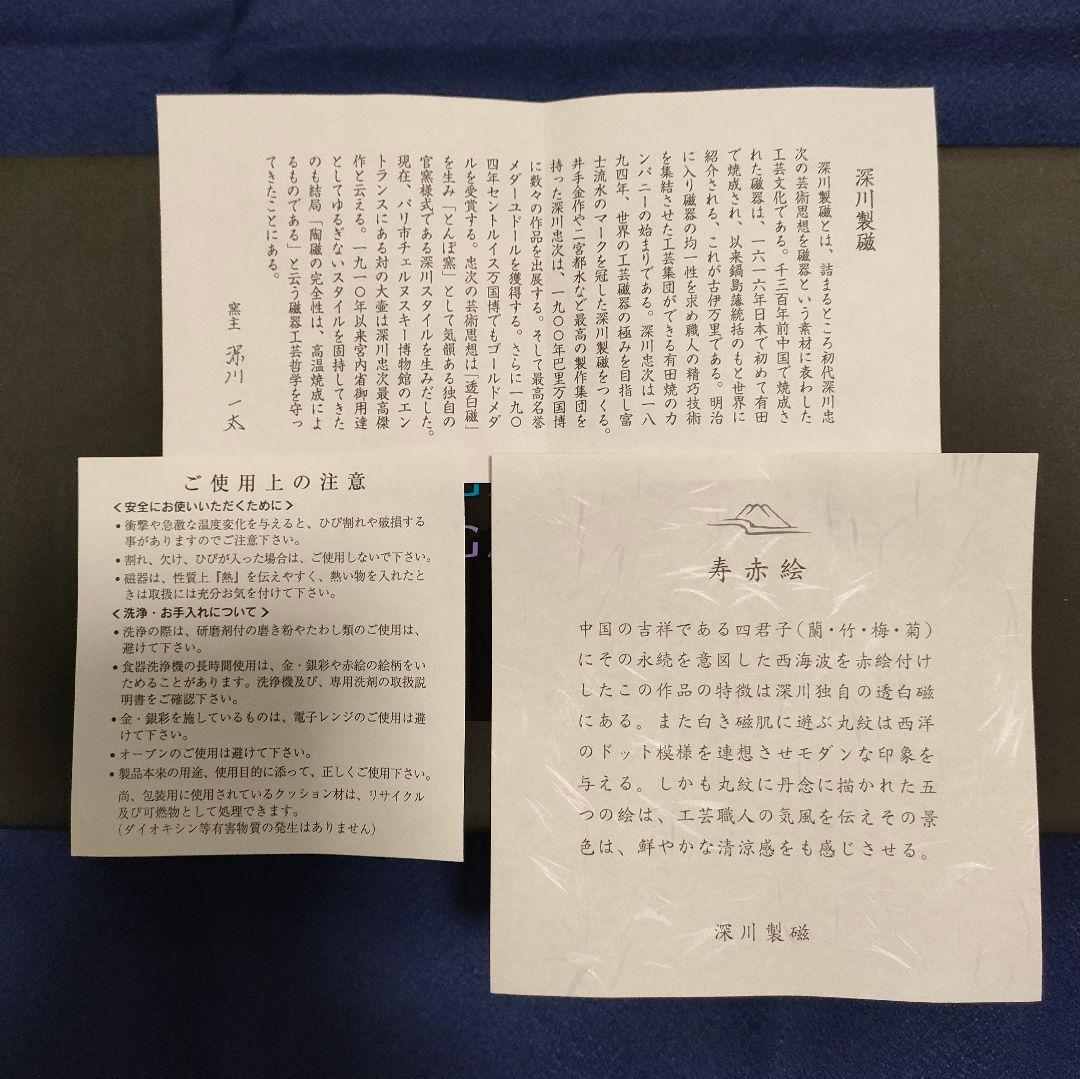 深川製磁
深川製磁とは、詰まるところ初代深川忠
次の芸術思想を磁器という素材に表わした
工芸文化である。千三百年前中国で焼成さ
れた磁器は、一六一六年日本で初めて有田
で焼成され、以来鍋島藩統括のもと世界に
紹介される、これが古伊万里である。明治
に入り磁器の均一性を求め職人の精巧技術
を集結させた工芸集団ができる有田焼のカ
ンパニーの始まりである。深川忠次は一八
九四年、世界の工芸磁器の極みを目指し富
士流水のマークを冠した深川製磁をつくる。
井手金作や二宮都水など最高の製作集団を
持った深川忠次は、一九〇〇年巴里万国博
に数々の作品を出展する。そして最高名誉
メダーユドールを獲得する。さらに一九〇
四年セントルイス万国博でもゴールドメダ
ルを受賞する。忠次の芸術思想は「透白磁」
を生み「とんぼ窯」として気韻ある独自の
官窯様式である深川スタイルを生みだした。
現在、パリ市チェルヌスキー博物館のエン
トランスにある対の大壷は深川忠次最高傑
作と云える。一九一〇年以来宮内省御用達
としてゆるぎないスタイルを固持してきた
のも結局「陶磁の完全性は、高温焼成によ
るものである」と云う磁器工芸哲学を守っ
てきたことにある。
窯主 深川一太
ご使用上の注意
<安全にお使いいただくために>
•衝撃や急激な温度変化を与えると、ひび割れや破損する
事がありますのでご注意下さい。
•割れ、欠け、ひびが入った場合は、ご使用しないで下さい。
•磁器は、性質上『熱』を伝えやすく、熱い物を入れたと
きは取扱には充分お気を付けて下さい。
<洗浄・お手入れについて>
•洗浄の際は、研磨剤付の磨き粉やたわし類のご使用は、
避けて下さい。
•食器洗浄機の長時間使用は、金・銀彩や赤絵の絵柄をい
ためることがあります。洗浄機及び、専用洗剤の取扱説
明書をご確認下さい。
•金・銀彩を施しているものは、電子レンジのご使用は避
けて下さい。
•オーブンのご使用は避けて下さい。
•製品本来の用途、使用目的に添って、正しくご使用下さい。
尚、包装用に使用されているクッション材は、リサイクル
及び可燃物として処理できます。
(ダイオキシン等有害物質の発生はありません)
寿赤絵
中国の吉祥である四君子(蘭・竹・梅・菊)
にその永続を意図した西海波を赤絵付け
したこの作品の特徴は深川独自の透白磁
にある。また白き磁肌に遊ぶ丸紋は西洋
のドット模様を連想させモダンな印象を
与える。しかも丸紋に丹念に描かれた五
つの絵は、工芸職人の気風を伝えその景
色は、鮮やかな清涼感をも感じさせる。
深川製磁